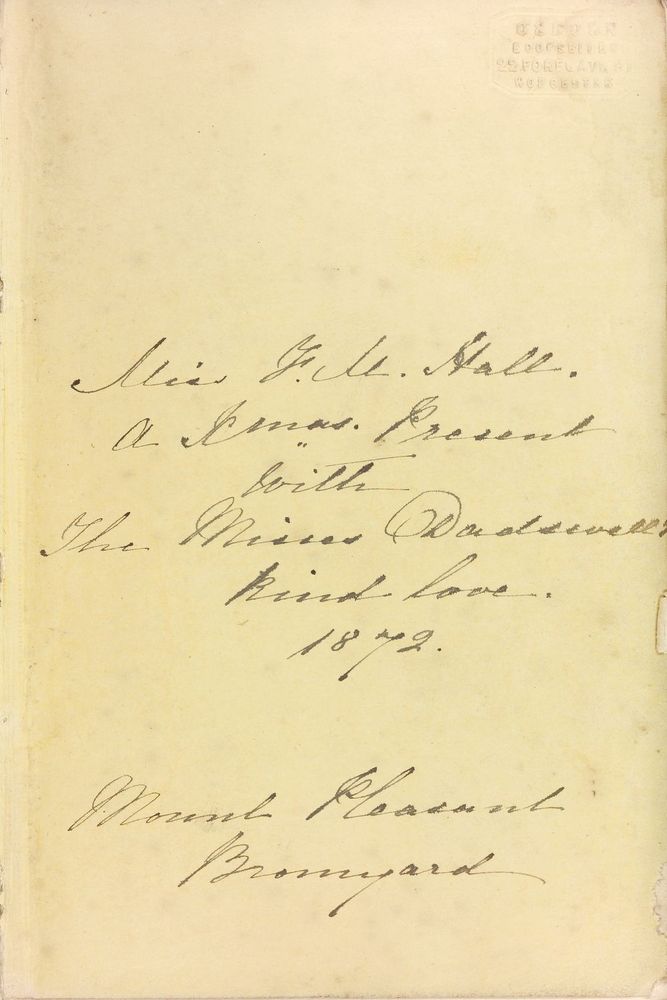 BOOKSELLER
WORCESTER
Miss F. M. Hall.
A Xmas. Present
With
The Misses Dadswell's
kind love.
1872.
Mount Pleasant
Bromyard